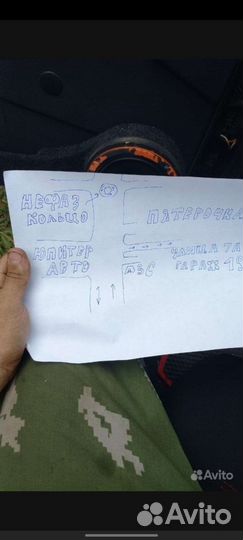 НЕФАЗ
КОЛЬЦО
ПЯТЕРОЧКА
ЮПИТЕР
АВТО
УЛИЦА ТА
ГАРАЖ 19
Avito
Avito